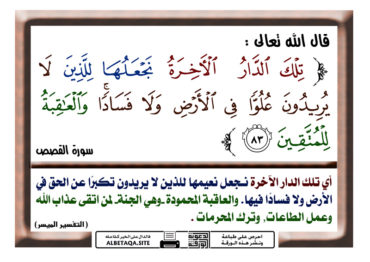 قال الله تعالى :
﴿ تِلْكَ الدَّارُ الْآخِرَةُ نَجْعَلُهَا لِلَّذِينَ لَا
يُرِيدُونَ عُلُوًّا فِي الْأَرْضِ وَلَا فَسَادًا ۚ وَالْعَاقِبَةُ
لِلْمُتَّقِينَ ﴿٨٣﴾ ﴾
سورة القصص
أي تلك الدار الآخرة نجعل نعيمها للذين لا يريدون تكبرًا عن الحق في
الأرض ولا فسادًا فيها. والعاقبة المحمودة -وهي الجنة- لمن اتقى عذاب الله
وعمل الطاعات، وترك المحرمات .
( التفسير الميسر )
احرص على طباعة
ونشر هذه الورقة
فالدال على الخير كفاعله
ALBETAQA.SITE